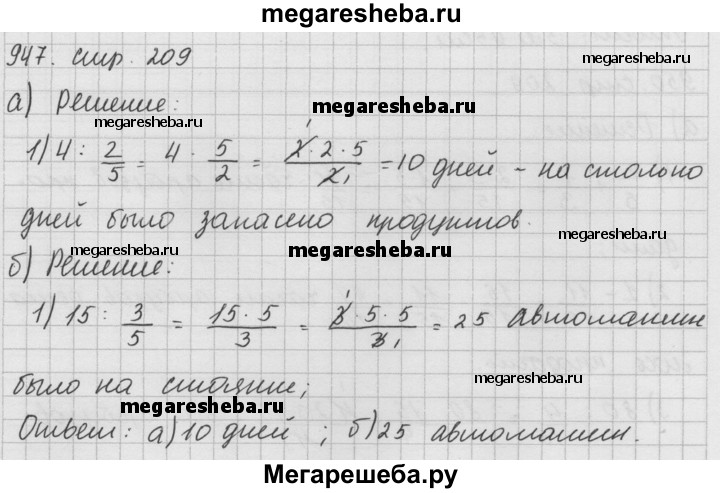 megaresheba.ru
947. стр. 209
megaresheba.ru
а) Решение:
megaresheba.ru
megaresheba.ru
1) 4 : 2/5 = 4 · 5/2 = 2·2·5/2 1 = 10 дней - на столько
megaresheba.ru
дней было запасено продуктов.
megaresheba.ru
megaresheba.ru
б) Решение:
megaresheba.ru
1) 15 : 3/5 = 15·5/3 = 3·5·5/3 1 = 25 автомашин
было на стоянке;
megaresheba.ru
megaresheba.ru
Ответ: а) 10 дней ; б) 25 автомашин.
Мегарешеба.ру